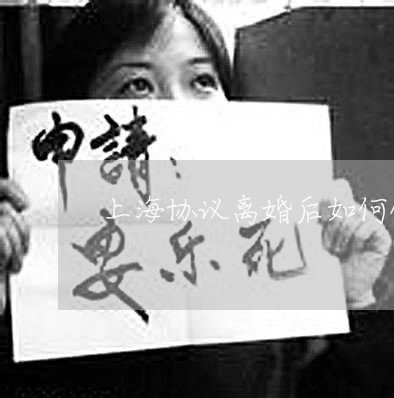 申請：
上海协议离婚后如何
安乐死